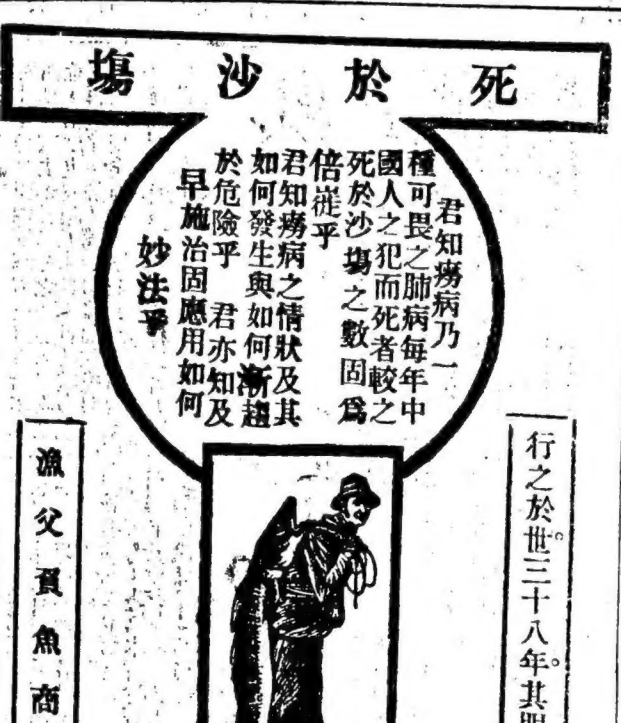 死於沙塲
君知癆病乃一
種可畏之肺病每年中
國人之犯而死者較之
死於沙塲之數固爲
倍蓰乎
君知癆病之情狀及其
如何發生與如何漸趨
於危險乎 君亦知及
早施治固應用如何
妙法乎
行之於世三十八年其
漁父負魚商